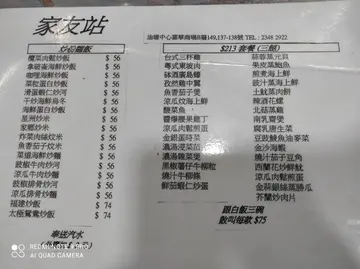 家友站
油塘中心嘉華商場B舖149,137-138號 TEL : 2348 2022
炒粉麵飯
欖菜肉鬆炒飯 $ 56
拿破崙海鮮炒飯 $ 56
咖哩海鮮炒飯 $ 56
菜粒蛋白炒飯 $ 56
滑蛋蝦仁炒河 $ 56
干炒海鮮烏冬 $ 56
海鮮蛋白炒飯 $ 56
星洲炒米 $ 56
家鄉炒米 $ 56
炸菜肉絲炆米 $ 56
魚香茄子炆米 $ 56
菜遠海鮮炒麵 $ 56
豉椒牛肉炒河 $ 56
涼瓜牛肉炒麵 $ 56
豉椒排骨炒河 $ 56
涼瓜排骨炒麵 $ 56
福建炒飯 $ 74
太極鴛鴦炒飯 $ 74
奉送汽水
$213 套餐 (三餸)
台式三杯雞
粵式東坡肉
砵酒廣島蠔
孜然雞中翼
魚香茄子煲
涼瓜炆海上鮮
菜脯魚
北菇魚肚
醬爆雜果龍丁
涼瓜肉鬆煎蛋
金銀蛋時菜
濃湯浸菜苗
濃湯雜菜煲
黑椒薯仔牛柳粒
燒汁牛柳條
鮮茄蝦仁炒蛋
蒜蓉蒸元貝
果皮蒸鮑魚
煎煮海上鮮
薯仔炆排骨
土魷蒸肉餅
辣酒花螺
北菇扒時菜
南乳齋煲
腐乳唐生菜
豆豉鯪魚油麥菜
金沙海鮮
燒汁茄子豆角
西蘭花炒鮮魷
涼瓜肉鬆煎蛋
金銀蒜蒸勝瓜
芥蘭炒肉片
跟白飯三碗
散叫每款 $75
REDMI NOTE
AI QUAD CAMERA